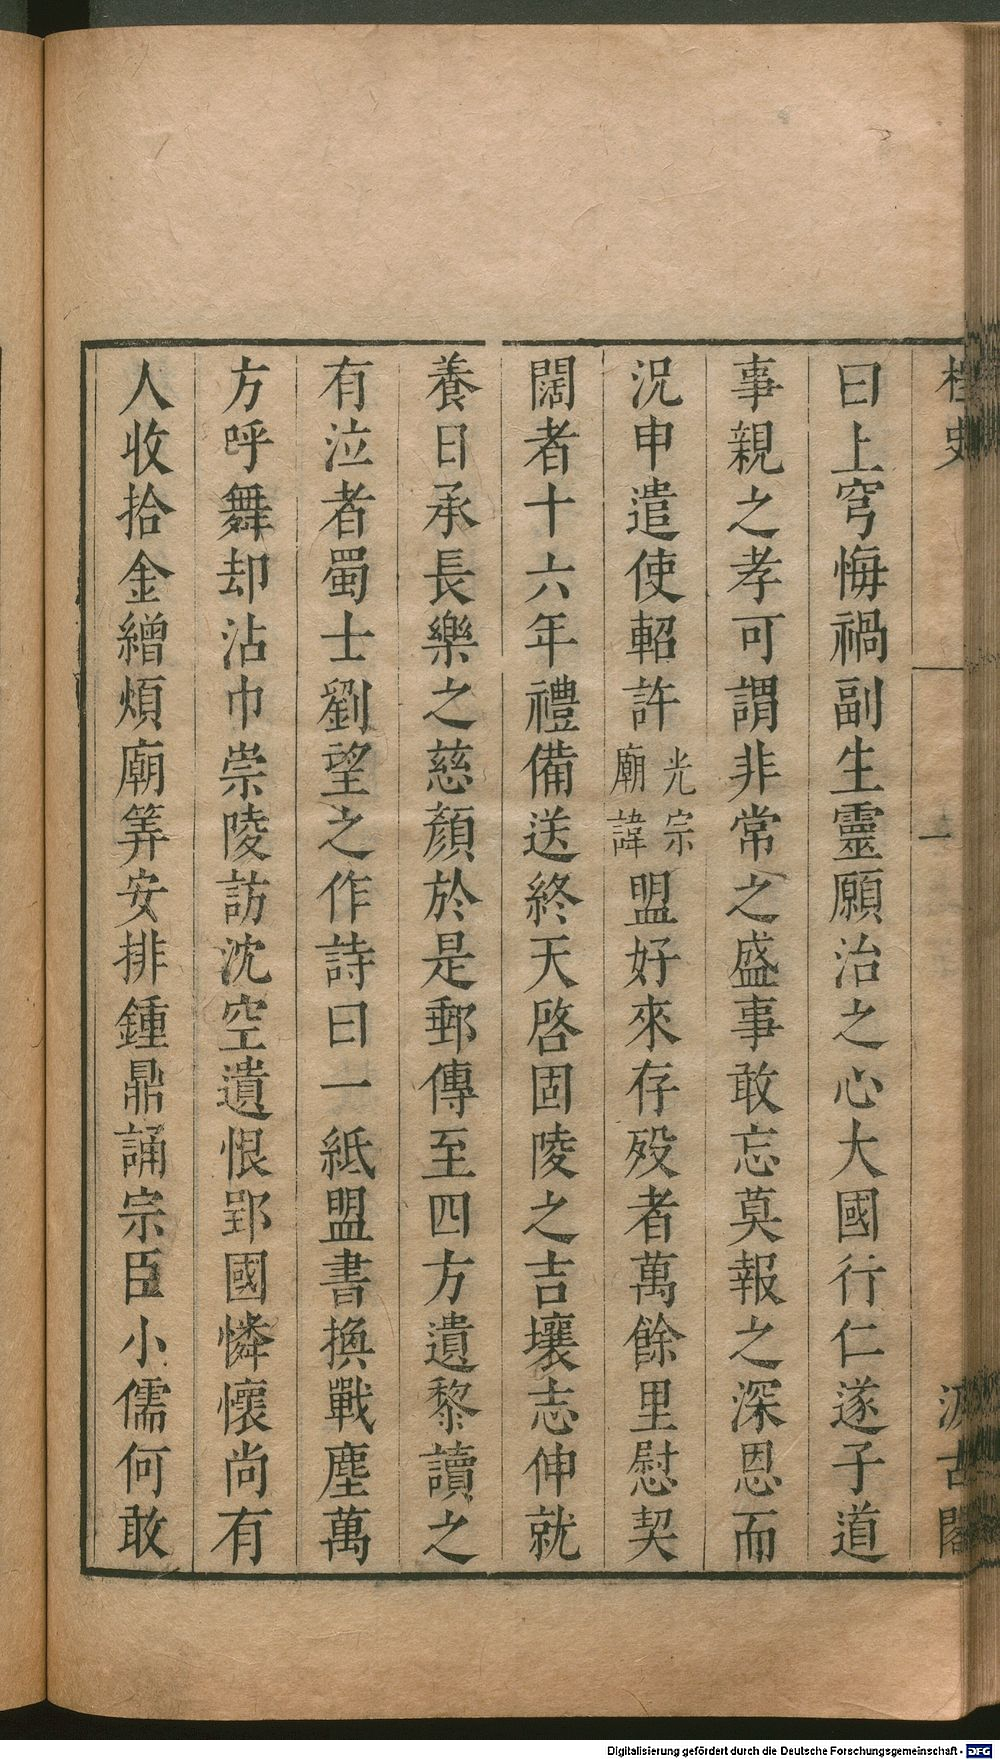 桯史
一
汲古閣
曰上穹悔禍副生靈願治之心大國行仁遂子道
事親之孝可謂非常之盛事敢忘莫報之深恩而
況申遣使軺許光宗廟諱盟好來存歿者萬餘里慰契
闊者十六年禮備送終天啓固陵之吉壤志伸就
養日承長樂之慈顏於是郵傳至四方遺黎讀之
有泣者蜀士劉望之作詩曰一紙盟書換戰塵萬
方呼舞却沾巾崇陵訪沈空遺恨郢國憐懷尚有
人收拾金繒煩廟筭安排鍾鼎誦宗臣小儒何敢
Digitalisierung gefördert durch die Deutsche Forschungsgemeinschaft - DFG